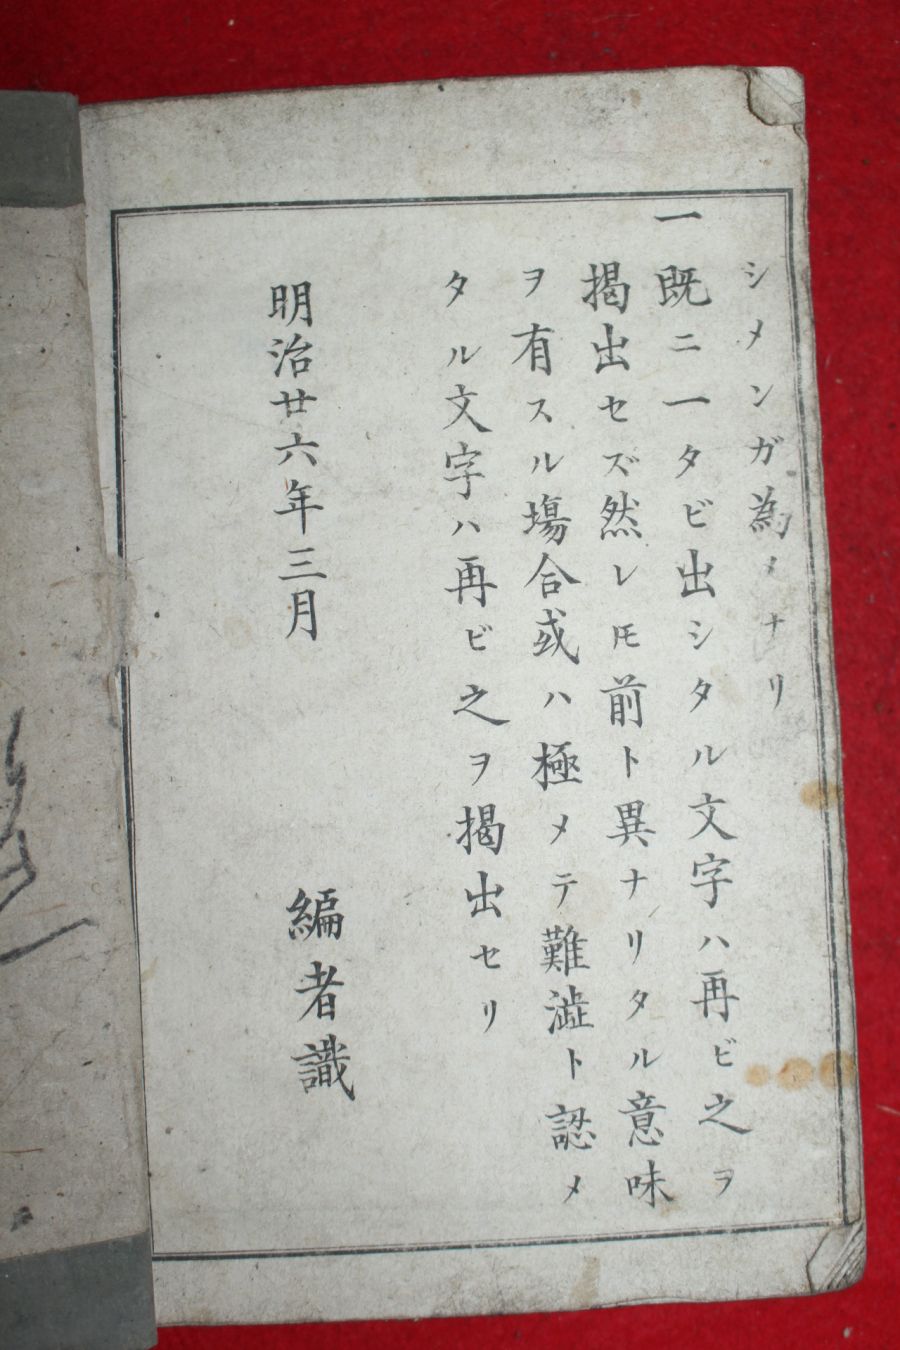 シメンガ為メナリ
一既ニ一タビ出シタル文字ハ再ビ之ヲ
掲出セズ然レ𪜈前ト異ナリタル意味
ヲ有スル塲合或ハ極メテ難澁ト認メ
タル文字ハ再ビ之ヲ掲出セリ
明治廿六年三月
編者識